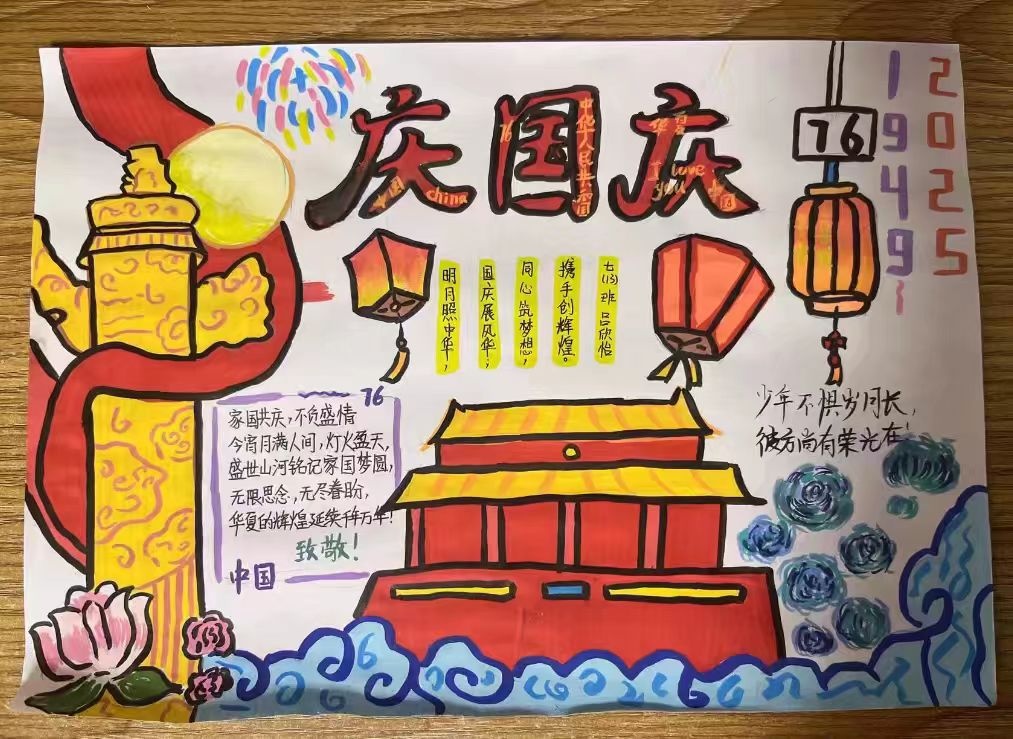 庆国庆
中国
china
76
中华人民共和国
华夏
I love
you
中国
76
1949~
2025
七(13)班 吕欣怡
携手创辉煌。
同心筑梦想,
国庆展风华;
明月照中华,
76
家国共庆,不负盛情
今宵月满人间,灯火盈天,
盛世山河铭记家国梦圆,
无限思念,无尽眷盼,
华夏的辉煌延续千年万年!
致敬!
中国
少年不惧岁月长,
彼方尚有荣光在!